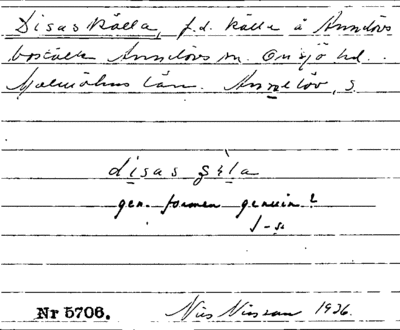 Disas Källa, f.d. källa å Annelövs
boställe Annelövs sn. Onsjö hd.
Malmöhus län. Annelöv, S.
disas
gen. formen genuin?
Nr 5706. Nils Nilsson 1936.